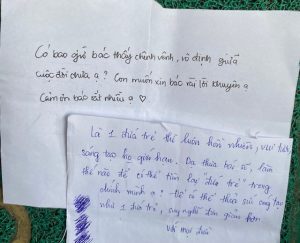 Có bao giờ bác thấy chênh vênh, vô định giữa
cuộc đời chưa ạ? Con muốn xin bác vài lời khuyên ạ
Cảm ơn bác rất nhiều ạ ♡
Là 1 đứa trẻ thì luôn hồn nhiên, vui tươi
sáng tạo
thế nào để có thể tìm lại "đứa trẻ" trong
chính mình ạ? Để có thể thoả sức sáng tạo
như 1 đứa trẻ, suy nghĩ đơn giản hơn.